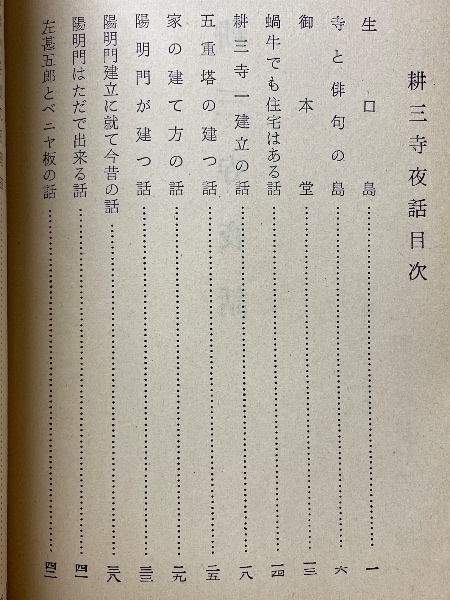 耕三寺夜話目次
生口島……一
寺と俳句の島……六
御本堂……一三
蝸牛でも住宅はある……一四
耕三寺一建立の話……一八
五重塔の建つ話……二五
家の建て方の話……二九
陽明門が建つ話……三三
陽明門建立に就て今昔の話……三八
陽明門はただで出来る話……四一
左甚五郎とベニヤ板の話……四二